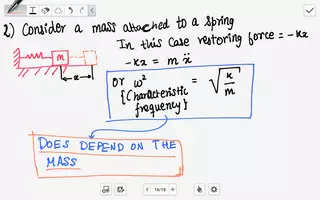 2) Consider a mass attached to a spring
In this case restoring force = -kx
m
x
-kx = m ẍ
Or ω² = √(k/m)
{Characteristic
frequency}
DOES DEPEND ON THE
MASS
16/16